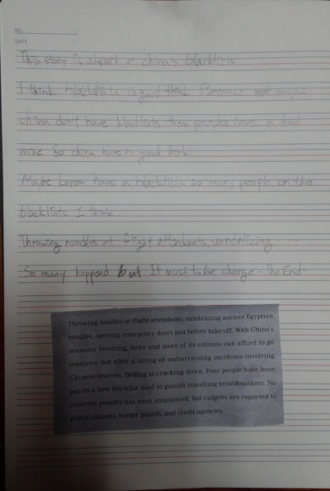 NO.
DATE
This story is about a china's blacklists.
I think blacklists a good think. Because
china don't have blacklists then people have a bad
So china have to good think.
Maybe korea have a blacklists so many people on the
blacklists I think.
Throwing noodles at flight attendants, vandalizing.
So many happend but It must to be change - The End -
Throwing noodles at flight attendants, vandalizing ancient Egyptian
temples, opening emergency doors just before take-off. With China's
economy booming, more and more of its citizens can afford to go
overseas, but after a string of embarrassing incidents involving
Chinese tourists, Beijing is cracking down. Four people have been
put on a new blacklist used to punish travelling troublemakers. No
concrete penalty has been announced, but culprits are reported to
police customs, border guards, and credit agencies.